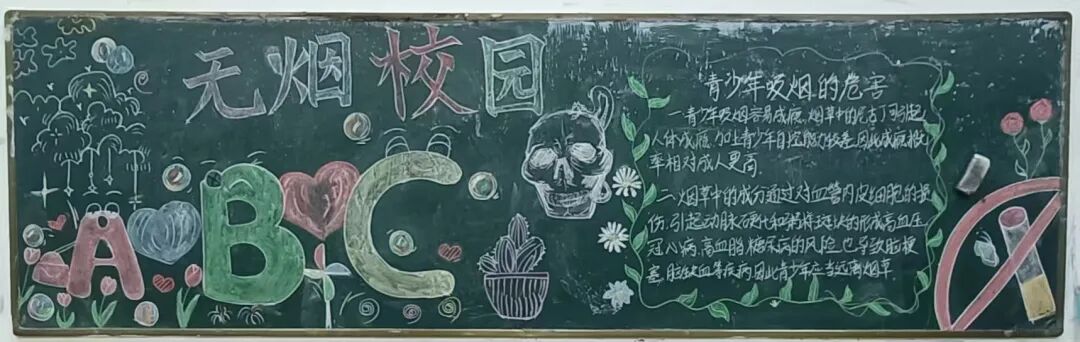 无烟校园
ABC
青少年吸烟的危害
一、青少年吸烟容易成瘾,烟草中的尼古丁可引起
人体成瘾,加上青少年自控能力较差,因此成瘾
率相对成人更高
二、烟草中的成分通过对血管内皮细胞的损
伤,引起动脉硬化和粥样斑块的形成高血压
冠心病,高血脂,糖尿病的风险,也导致脑梗
塞,脑缺血等疾病,因此青少年应当远离烟草